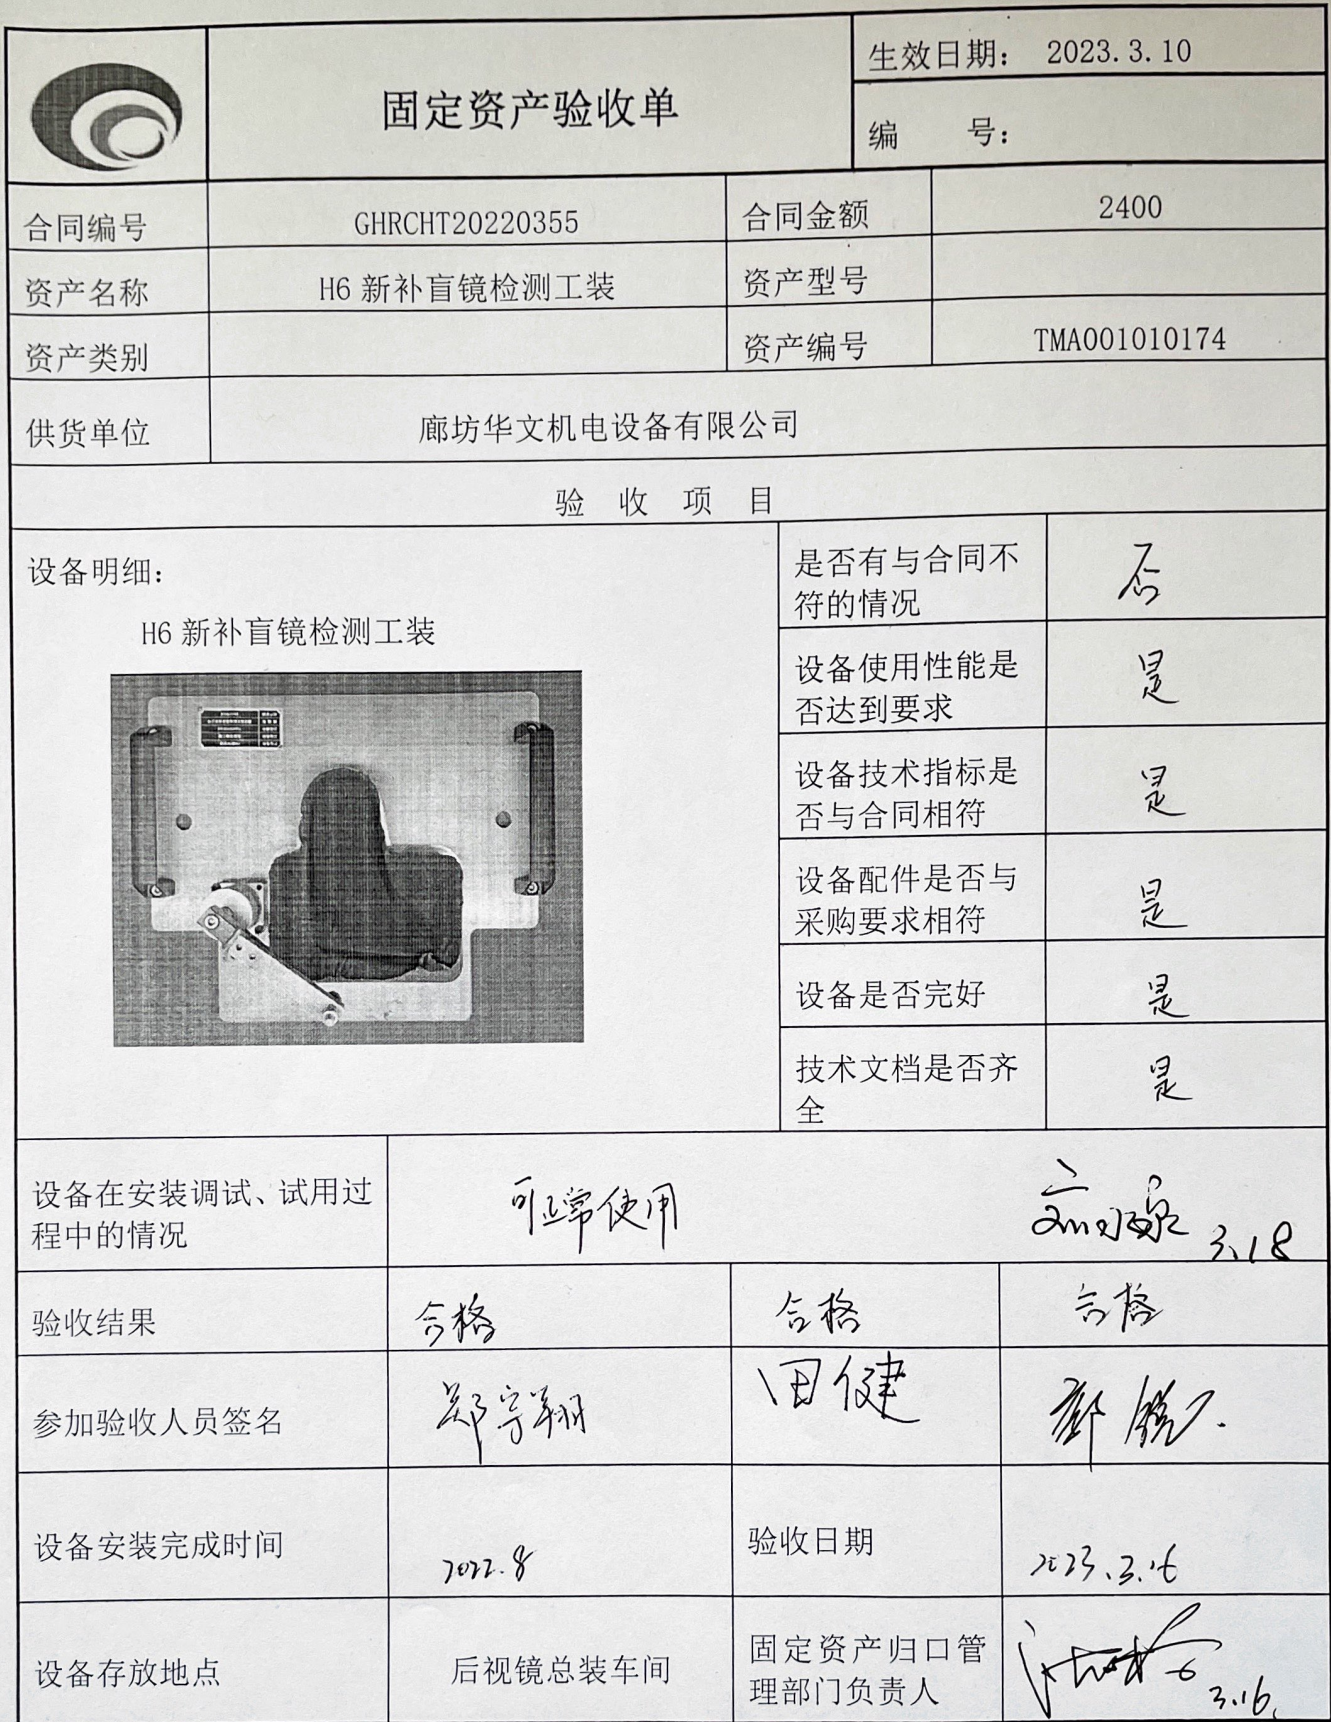 固定资产验收单
生效日期： 2023.3.10
编 号：
合同编号 GHRCHT20220355 合同金额 2400
资产名称 H6 新补盲镜检测工装 资产型号
资产类别 资产编号 TMA001010174
供货单位 廊坊华文机电设备有限公司
验 收 项 目
设备明细：
H6 新补盲镜检测工装
是否有与合同不
符的情况
否
设备使用性能是
否达到要求
是
设备技术指标是
否与合同相符
是
设备配件是否与
采购要求相符
是
设备是否完好
是
技术文档是否齐
全
是
设备在安装调试、试用过
程中的情况
可正常使用
3.18
验收结果 合格 合格 合格
参加验收人员签名 郑宇翔 田健
设备安装完成时间 2022.8 验收日期 2023.3.16
设备存放地点 后视镜总装车间
固定资产归口管
理部门负责人
3.16